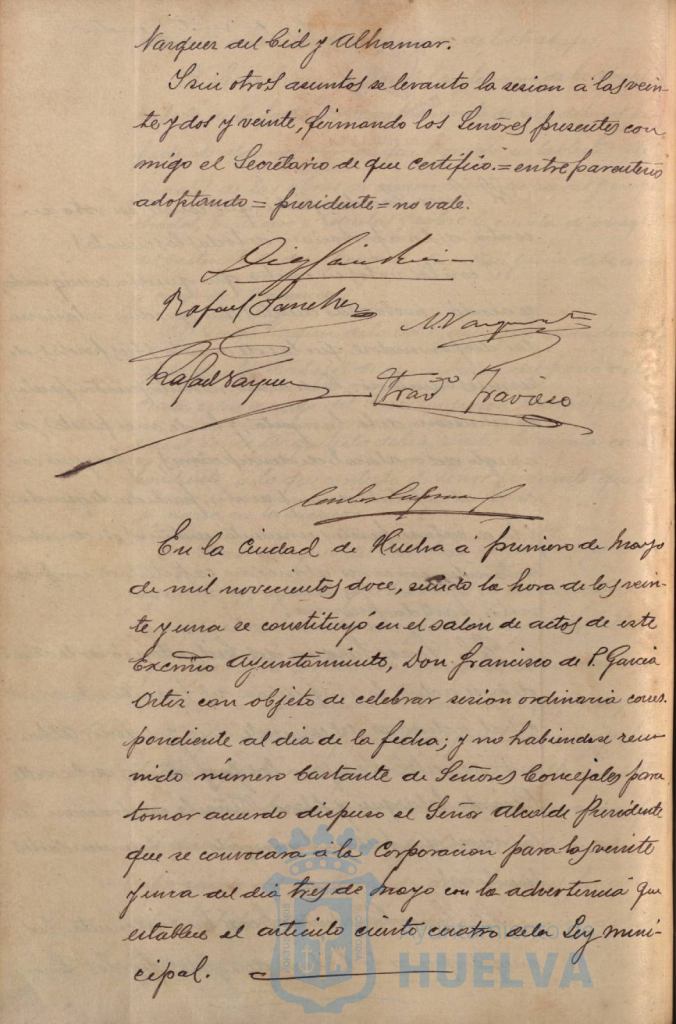 Vazquez del Cid y Alhamar.
Y sin otros asuntos se levanto la sesion á las vein-
te y dos y veinte, firmando los Señores presentes con
migo el Secretario de que certifico. = entre parentesis
adoptando = presidente = no vale.
Rafael Sanchez
M. Vazquez
Rafael Vazquez
Franco Travieso
En la Ciudad de Huelva á primero de Mayo
de mil novecientos doce, siendo la hora de las vein-
te y una se constituyó en el salon de actos de este
Excmo Ayuntamiento, Don Francisco de P. Garcia
Ortiz con objeto de celebrar sesion ordinaria corres-
pondiente al dia de la fecha; y no habiendose reu-
nido número bastante de Señores Concejales para
tomar acuerdo dispuso el Señor Alcalde Presidente
que se convocara á la Corporacion para las veinte
y una del dia tres de Mayo con la advertencia que
establece el articulo ciento cuatro de la Ley muni-
cipal.
HUELVA